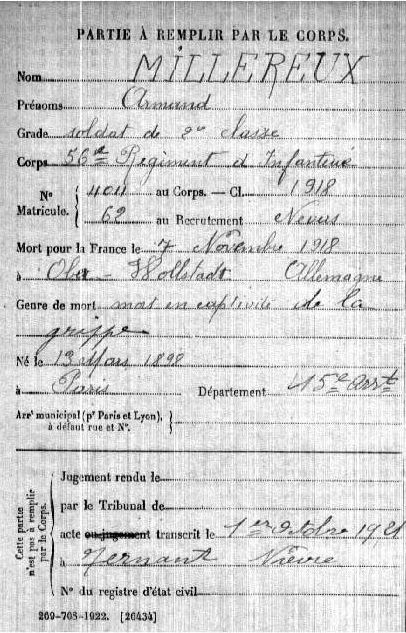 PARTIE À REMPLIR PAR LE CORPS.
Nom MILLEREUX
Prénoms Armand
Grade soldat de 2e classe
Corps 56e Régiment d'Infanterie
N° Matricule. { 404 au Corps. — Cl. 1918
62 au Recrutement Nevers
Mort pour la France le 7 Novembre 1918
à Ober-Wollstadt Allemagne
Genre de mort mort en captivité de la
grippe
Né le 13 Mars 1898
à Paris Département 15e Arrt
Arrt municipal (pr Paris et Lyon), à défaut rue et N°. }
Cette partie n'est pas à remplir par le Corps. {
Jugement rendu le
par le Tribunal de
acte ou jugement transcrit le 1er octobre 1921
à Ternant Nièvre
N° du registre d'état civil
269-708-1922. [26434]